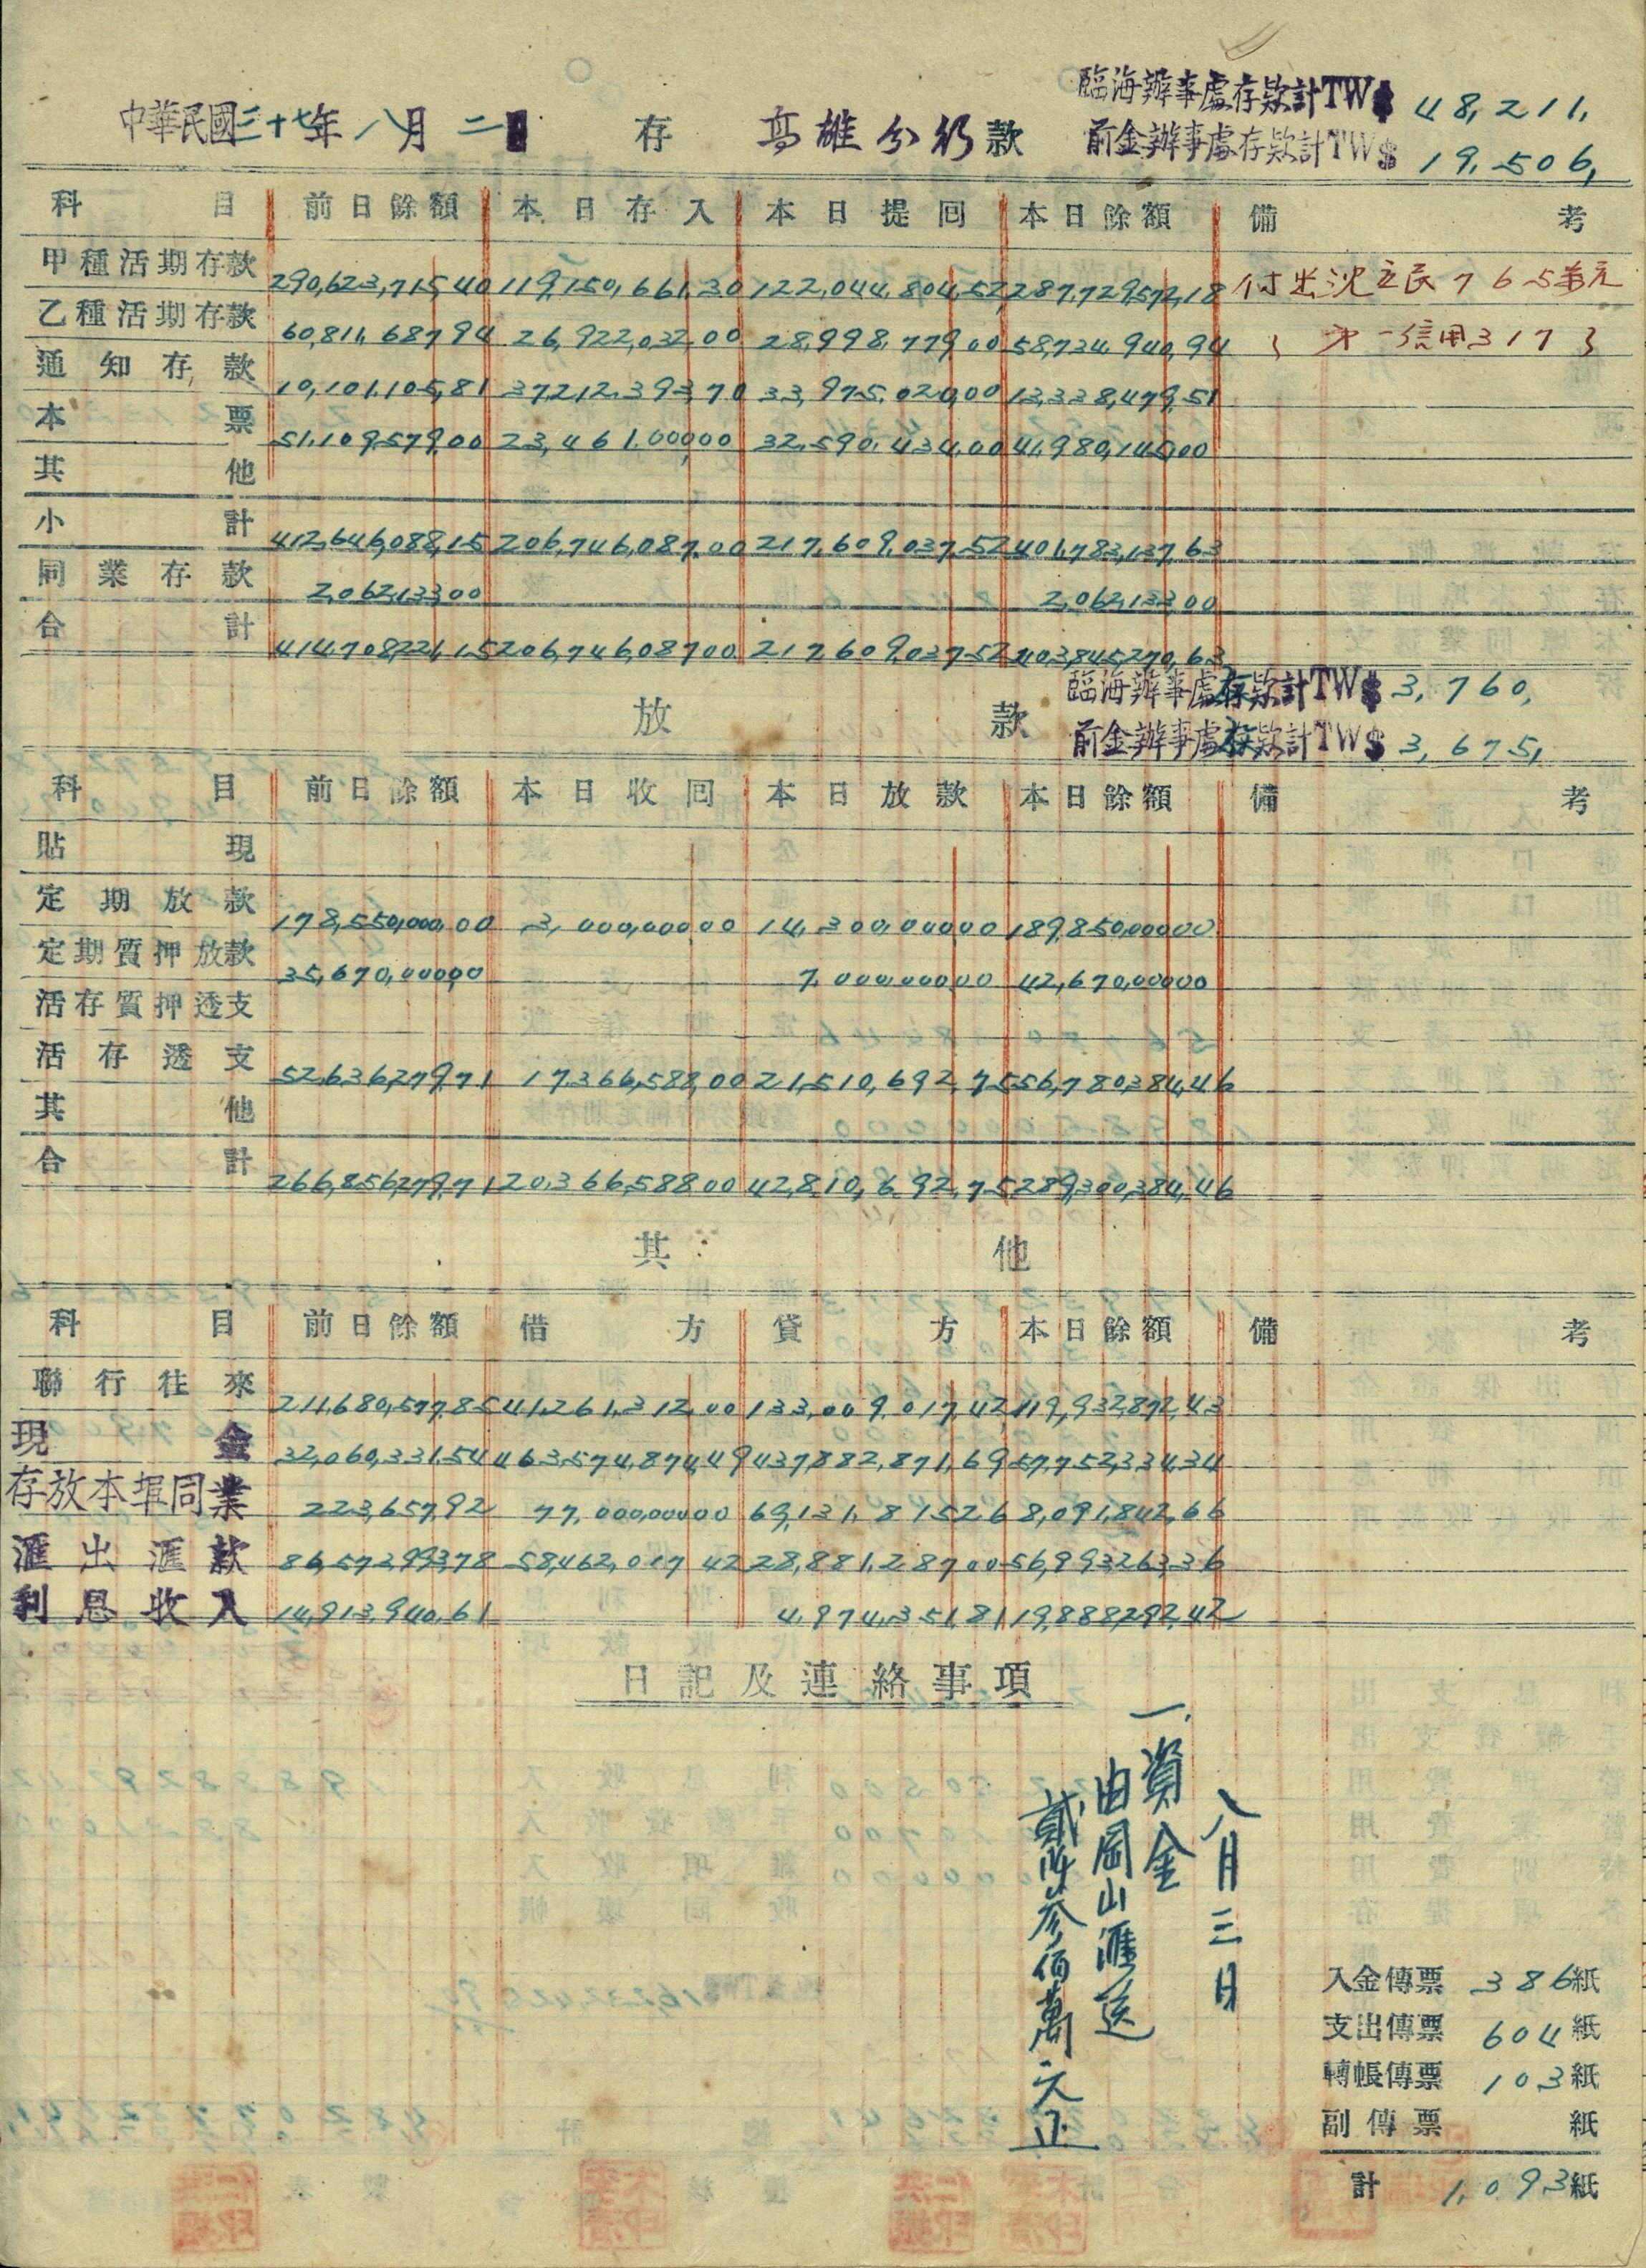 臨海辦事處存款計TW$ 48,211,
中華民國三十七年 八月 二日 存 高雄分行 款 前金辦事處存款計TW$ 19,506,
科目 前日餘額 本日存入 本日提回 本日餘額 備考
甲種活期存款 290,623,715.40 119,150,661.30 122,044,804.52 287,729,572.18 付出沈立民765萬元
乙種活期存款 60,811,687.94 26,922,032.00 28,998,779.00 58,734,940.94 〃 第一信用317〃
通知存款 10,101,105.81 37,212,393.70 33,975,020.00 13,338,479.51
本票 51,109,579.00 23,461,000.00 32,590,434.00 41,980,145.00
其他
小計 412,646,088.15 206,746,087.00 217,609,037.52 401,783,137.63
同業存款 2,062,133.00 2,062,133.00
合計 414,708,221.15 206,746,087.00 217,609,037.52 403,845,270.63
臨海辦事處存款計TW$ 3,760,
放款 前金辦事處存款計TW$ 3,675,
科目 前日餘額 本日收回 本日放款 本日餘額 備考
貼現
定期放款 178,550,000.00 3,000,000.00 14,300,000.00 189,850,000.00
定期質押放款 35,670,000.00 7,000,000.00 42,670,000.00
活存質押透支
活存透支 52,636,279.71 17,366,588.00 21,510,692.75 56,780,384.46
其他
合計 266,856,279.71 20,366,588.00 42,810,692.75 289,300,384.46
其他
科目 前日餘額 借方 貸方 本日餘額 備考
聯行往來 211,680,577.85 41,261,312.00 133,009,017.42 119,932,872.43
現金 32,060,331.54 463,574,874.49 437,882,871.69 57,752,334.34
存放本埠同業 223,657.92 77,000,000.00 69,131,815.26 8,091,842.66
匯出匯款 86,573,993.78 58,462,017.42 28,881,287.00 56,993,263.36
利息收入 14,913,940.61 4,974,351.81 19,888,292.42
日記及連絡事項
八月三日
一.資金
由岡山匯送
貳仟參佰萬元正
入金傳票 386紙
支出傳票 604紙
轉帳傳票 103紙
副傳票 紙
計 1,093紙